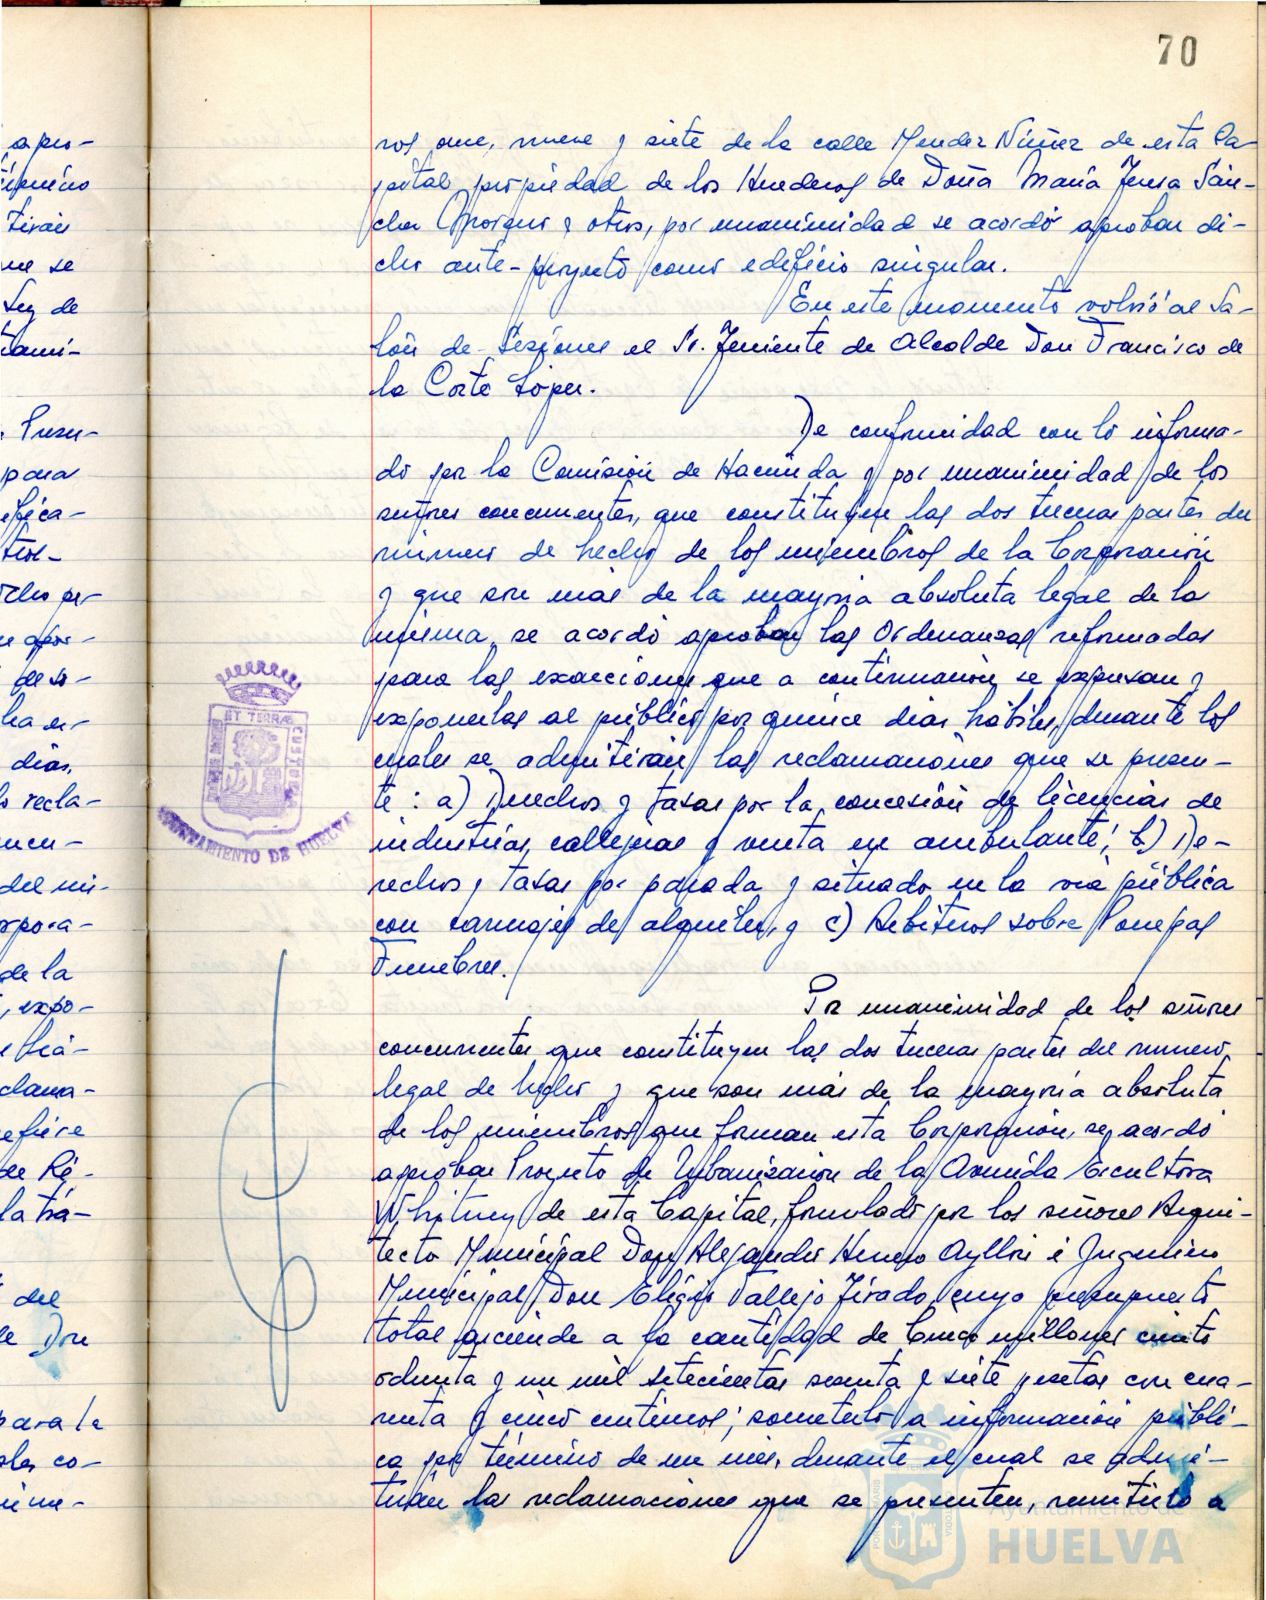 70
ros once, nueve y siete de la calle Mendez Núñez de esta Ca-
pital propiedad de los Herederos de Doña María Teresa Sán-
chez y otros, por unanimidad se acordó aprobar di-
cho ante-proyecto como edificio singular.
En este momento volvió al Sa-
lón de Sesiones el Sr. Teniente de Alcalde Don Francisco de
la Corte López.
De conformidad con lo informa-
do por la Comisión de Hacienda y por unanimidad de los
señores concurrentes, que constituyen las dos terceras partes del
número de hecho de los miembros de la Corporación
y que son más de la mayoría absoluta legal de la
misma, se acordó aprobar las Ordenanzas reformadas
para las exacciones que a continuación se expresan y
exponerlas al público por quince días hábiles, durante los
cuales se admitirán las reclamaciones que se presen-
te: a) Derechos y tasas por la concesión de licencias de
industrias callejeras y venta en ambulante; b) De-
rechos y tasas por parada y situado en la vía pública
con carruajes de alquiler, y c) Arbitrios sobre Pompas
Fúnebres.
Por unanimidad de los señores
concurrentes que constituyen las dos terceras partes del número
legal de hecho y que son más de la mayoría absoluta
de los miembros que forman esta Corporación, se acordó
aprobar Proyecto de Urbanización de la Avenida Escultora
Whitney de esta Capital, formulado por los señores Arqui-
tecto Municipal Don Alejandro Herrero Ayllón e Ingeniero
Municipal Don Eligio Vallejo Tirado, cuyo presupuesto
total asciende a la cantidad de cinco millones ciento
ochenta y un mil setecientas sesenta y siete pesetas con cua-
renta y cinco centimos; someterlo a información públi-
ca por término de un mes, durante el cual se admi-
tirán las reclamaciones que se presenten, remitirlo a
a pro-
tirán
que se
Ley de
Presu-
para
días,
recla-
de la
, expo-
clama-
efiere
de Ré-
la trá-
del
de Don
para la
ET TERRAE CUSTODIA
AYUNTAMIENTO DE HUELVA
Ayuntamiento de
HUELVA